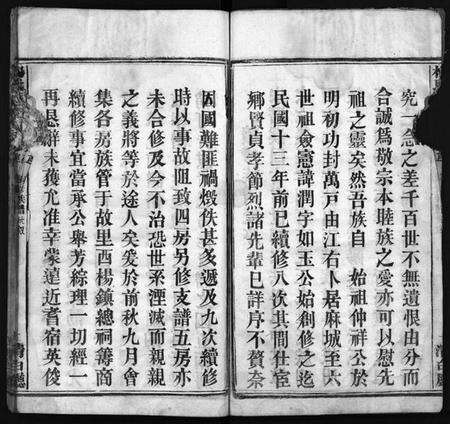 究一念之差千百世不無遺恨由分而
合誠爲敬宗本睦族之愛亦可以慰先
祖之靈矣然吾族自　始祖伸祥公於
明初功封萬戸由江右卜居麻城至六
世祖僉憲諱潤字如玉公始創修之迄
民國十三年前已續修八次其間仕宦
鄉賢貞孝節烈諸先輩已詳序不贅奈
因國難匪禍燬佚甚多遞及九次續修
時以事故阻致四房另修支譜五房亦
未合修及今不治恐世系湮滅而親親
之義將等於途人矣爰於前秋九月會
集各房族管于故里酉楊鎭總祠籌商
續修事宜當承公舉芳綜理一切經一
再懇辭未獲尤准幸蒙遠近耆宿英俊
清白